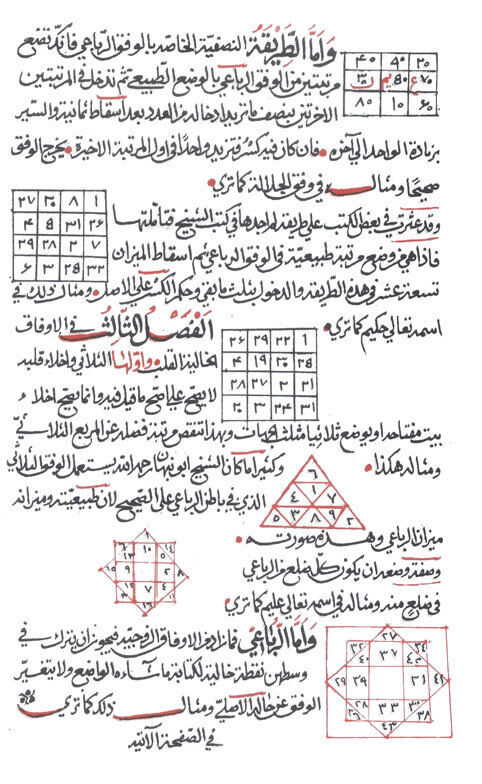 وأما الطريقة النصفية الخاصة بالوفق الرباعي فانك تضع
مرتبتين من الوفق الرباعي بالوضع الطبيعي ثم تدخل في المرتبتين
الاخرتين بنصف ما تريد ادخاله من العدد بعد اسقاط ثمانية والسير
بزيادة الواحد الى آخره فان كان فيه كسر فتزيد واحدا في اول المرتبة الاخيرة يخرج الوفق
صحيحا ومثاله في وفق الجلالة كما ترى
٢٧ ٢٠ ٨ ١
٤ ٥ ٣١ ٢٦
٢٩ ٢٨ ٢ ٧
٦ ٣ ٢٥ ٣٢
وقد عثرت في بعض الكتب على طريقة لم اجدها في كتب الشيخ فتأملتها
فاذا هي وضع مرتبة طبيعية في الوفق الرباعي ثم اسقاط الميزان
تسعة عشر في هذه الطريقة والدخول بثلث ما بقي وحكم الكسر على الاصل ومثال ذلك في
اسمه تعالى حكيم كما ترى
٢٦ ٢٩ ٢٢ ١
٤ ١٩ ٢٠
٢٨ ٢٧ ٢ ٢١
٢٠ ٣ ٢٤ ٣١
الفصل الثالث في الاوفاق
الخالية القلب واولها الثلاثي واخلاء قلبه
لا يصح على اصح ما قيل فيه وانما يصح اخلاء
بيت مفتاحه او يوضع ثلاثيا مثلث الجهات وبهذا تنقص مرتبة فضله عن المربع الثلاثي
ومثاله هكذا
٦
٤ ١ ٧
٥ ٣ ٨ ٩ ٢
وكثيرا ما كان الشيخ ابو نهان رحمه الله يستعمل الوفق الثلاثي
الذي في باطن الرباعي على الصحيح لان طبيعيته وميزانه
ميزان الرباعي وهذه صورته
وصفة وضعه ان يكون كل ضلع من الرباعي
في ضلع منه ومثاله في اسمه تعالى عليم كما ترى
وأما الرباعي فما زاد من الاوفاق الزوجية فيجوز ان يترك في
وسطه نقطة خالية لكتابة ما شاءه الواضع ولا يتغير
الوفق عن حاله الاصلي ومثال ذلك كما ترى
في الصفحة الآتية